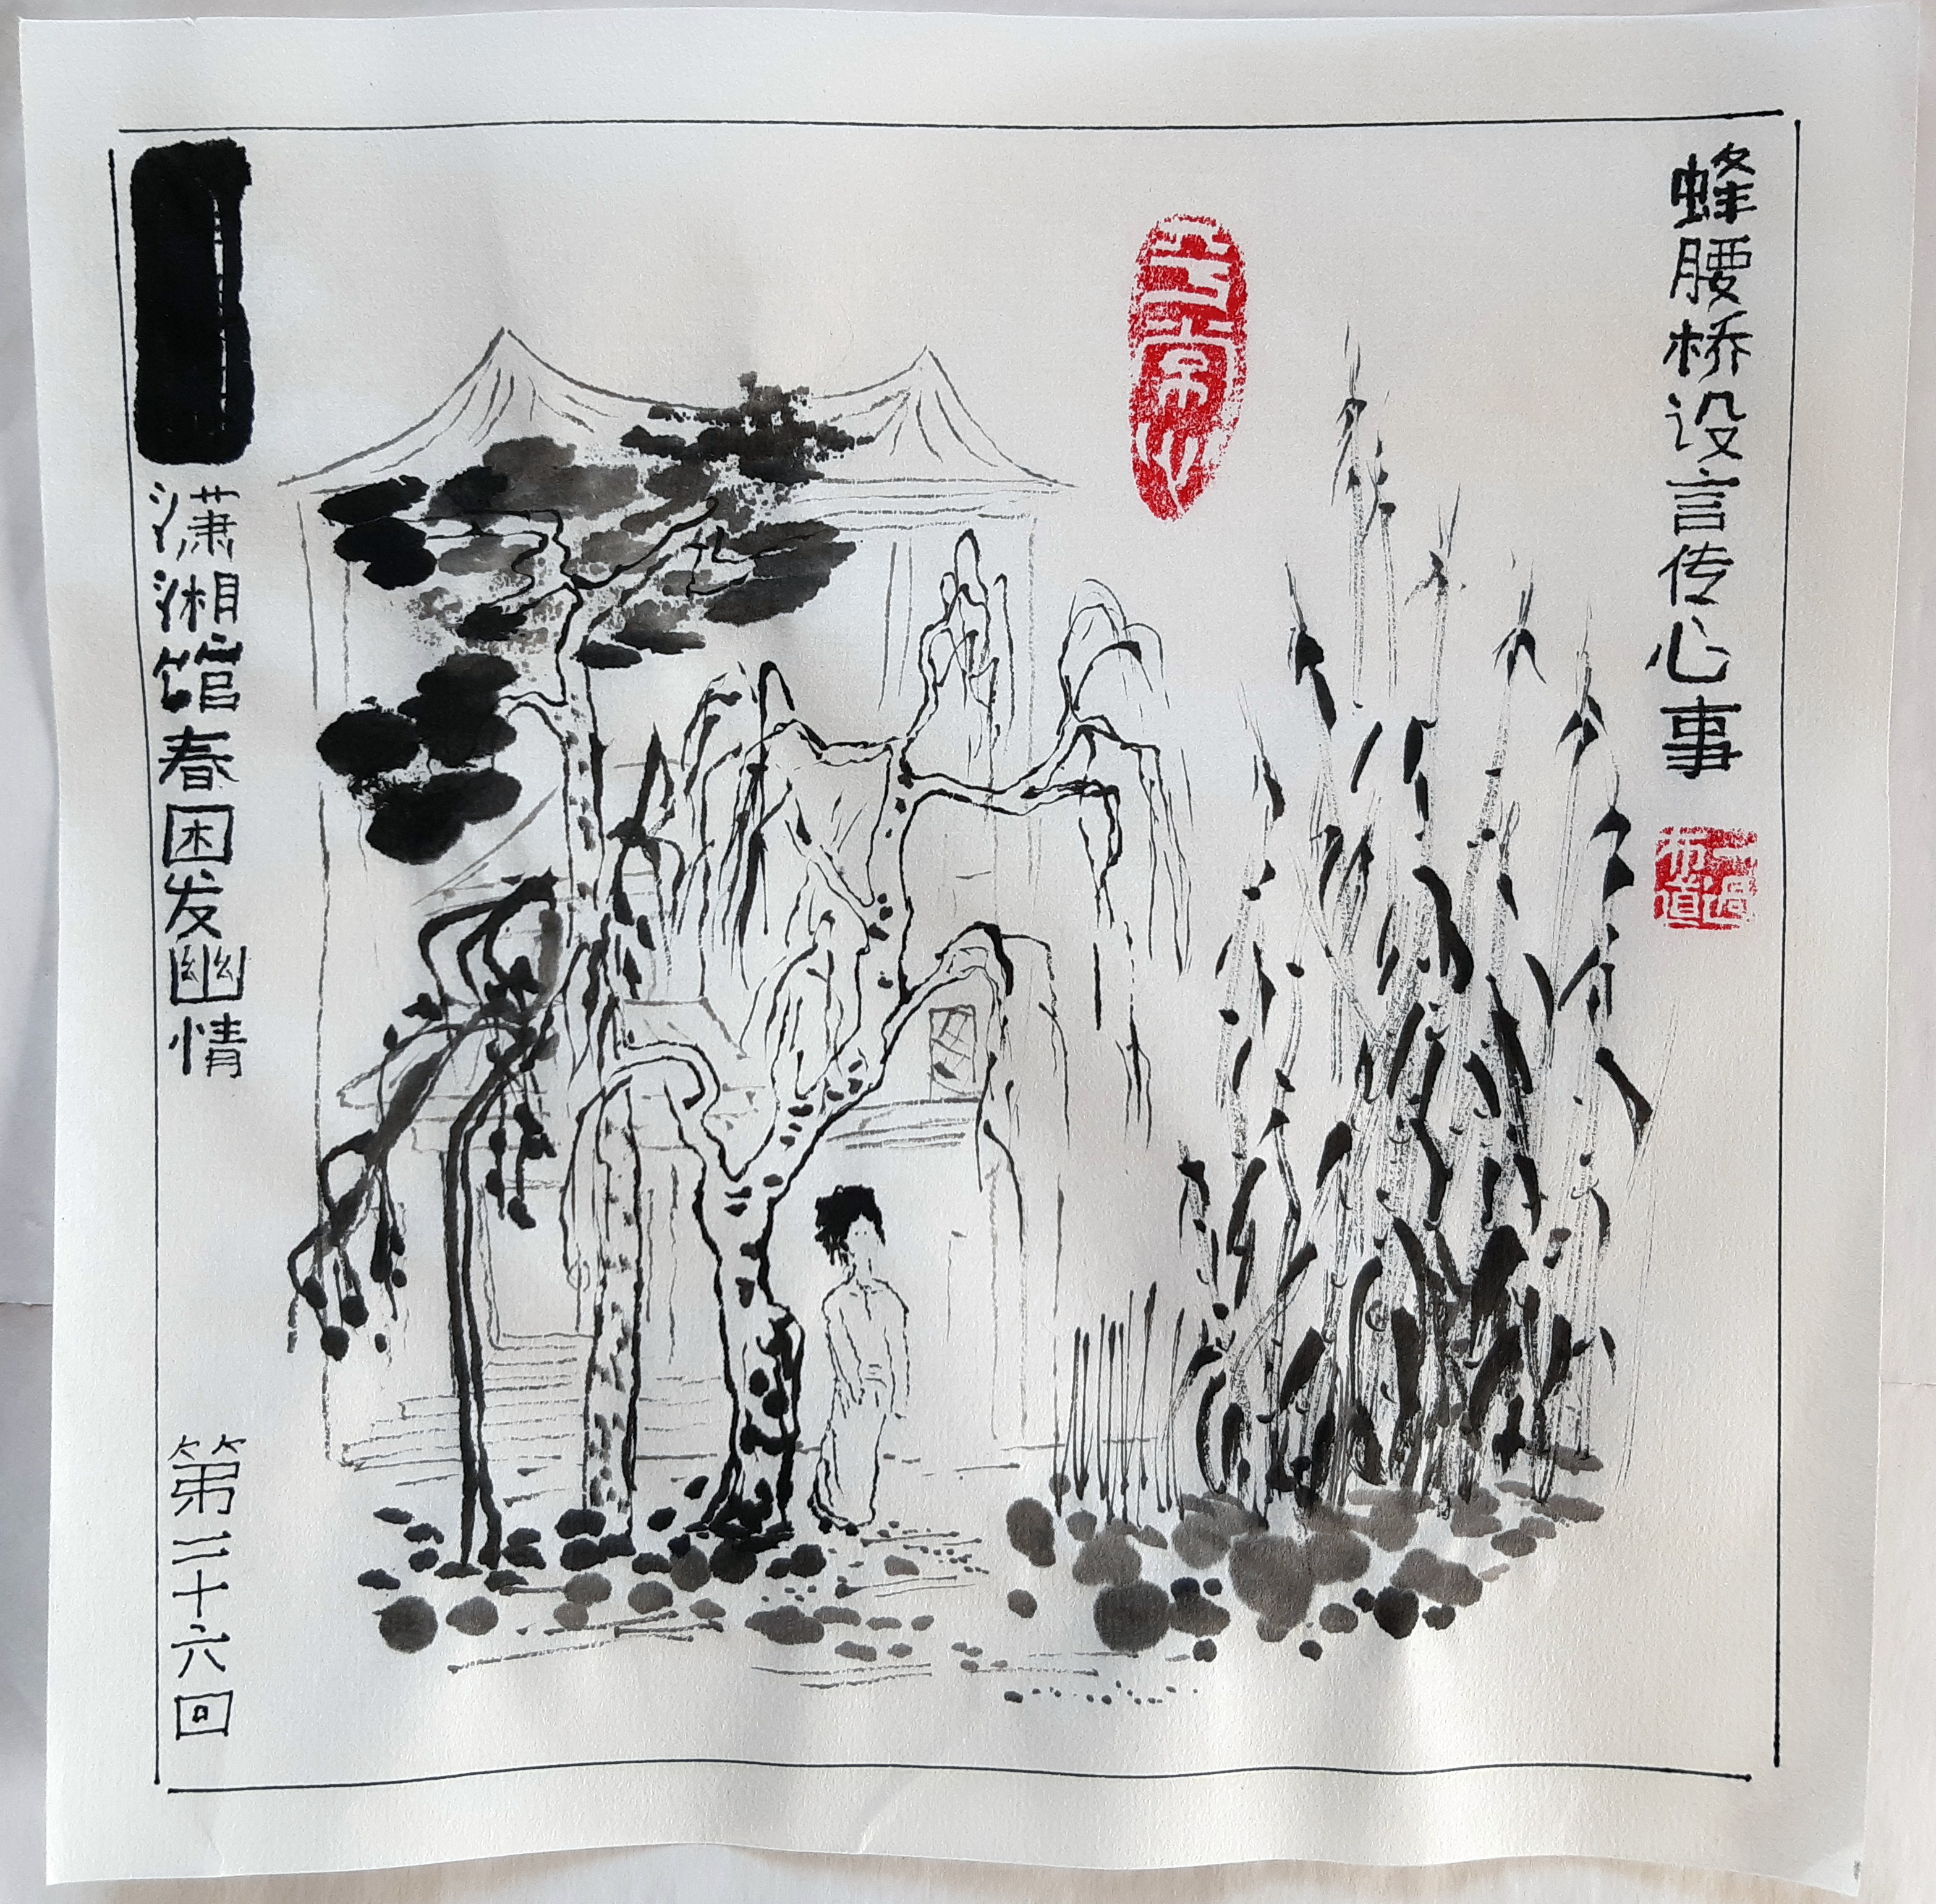 蜂腰桥设言传心事
潇湘馆春困发幽情
第二十六回